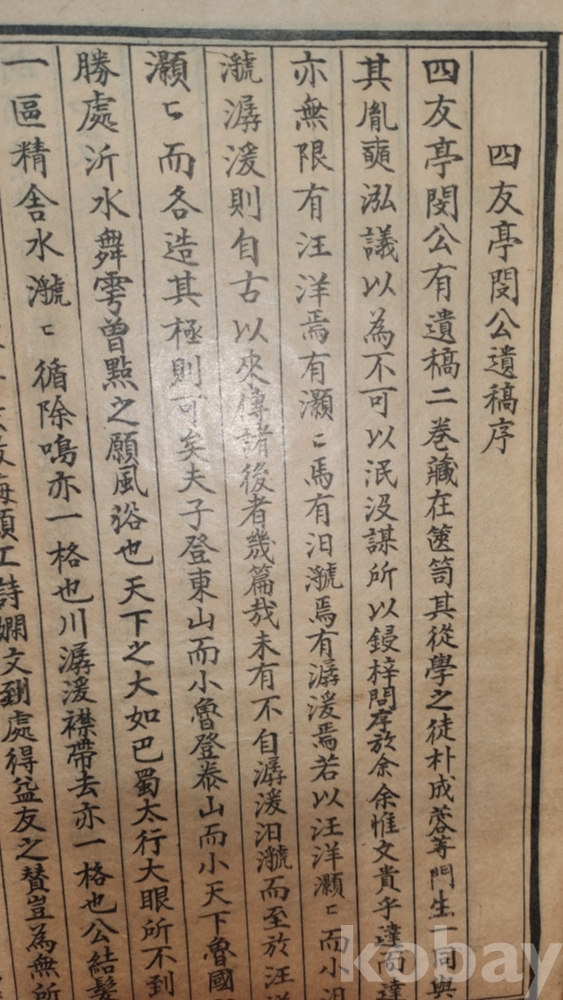 四友亭閔公遺稿序
四友亭閔公有遺稿二卷藏在篋笥其從學之徒朴成蓉等門生一同與
其胤奭泓議以為不可以泯沒謀所以鋟梓問序於余余惟文貴乎達而達
亦無限有汪洋焉有灝〻焉有汩㶁焉有潺湲焉若以汪洋灝〻而小汩
㶁潺湲則自古以來傳諸後者幾篇哉未有不自潺湲汩㶁而至於汪洋
灝〻而各造其極則可矣夫子登東山而小魯登泰山而小天下魯國
勝處沂水舞雩曾點之願風浴也天下之大如巴蜀太行大眼所不到
一區精舍水㶁〻循除鳴亦一格也川潺湲襟帶去亦一格也公結髮
誨願工詩嫺文到處得益友之賛豈為無所
kobay